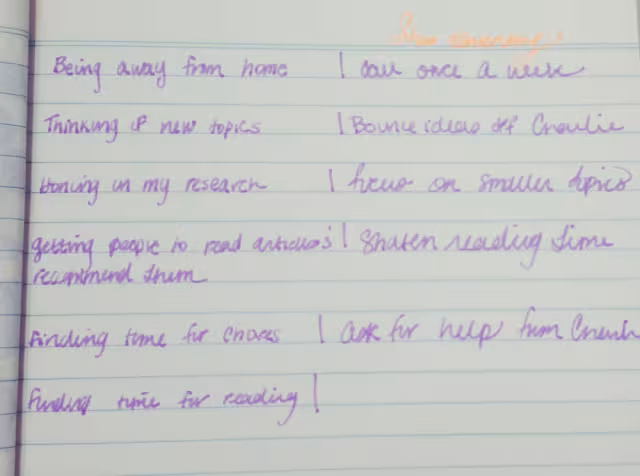 Being away from home | call once a week
Thinking of new topics | Bounce ideas off Charlie
Honing in my research | focus on smaller topics
getting people to read articles | Shorten reading time
recommend them
Finding time for chores | ask for help from
Finding time for reading |